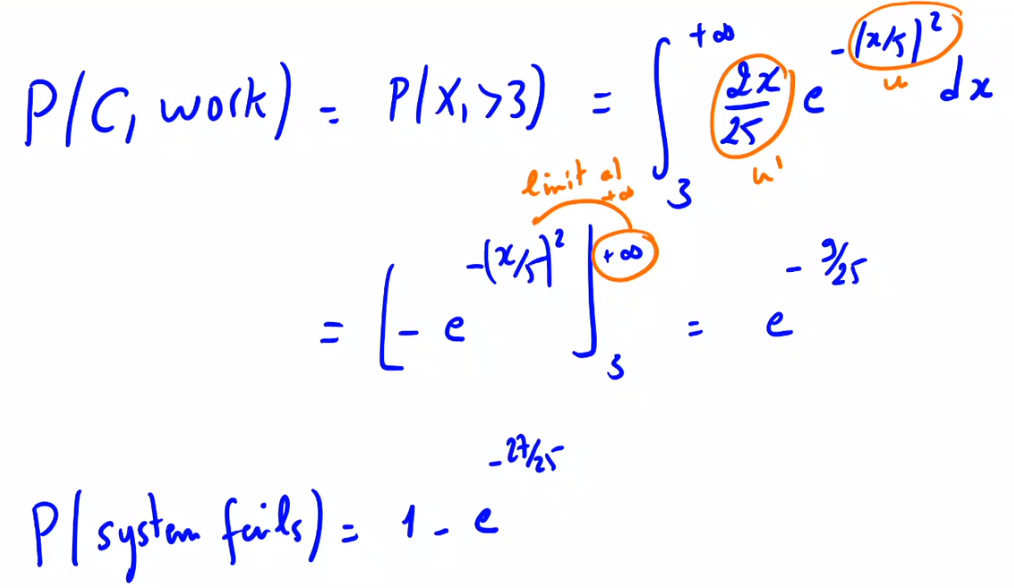 P(C₁ work) = P(X₁>3) = ∫₃^{+∞} 2x/25 e^{-(x/5)²} dx
u
u'
limit at +∞
= [- e^{-(x/5)²}]₃^{+∞} = e^{-9/25}
P(system fails) = 1 - e^{-27/25}